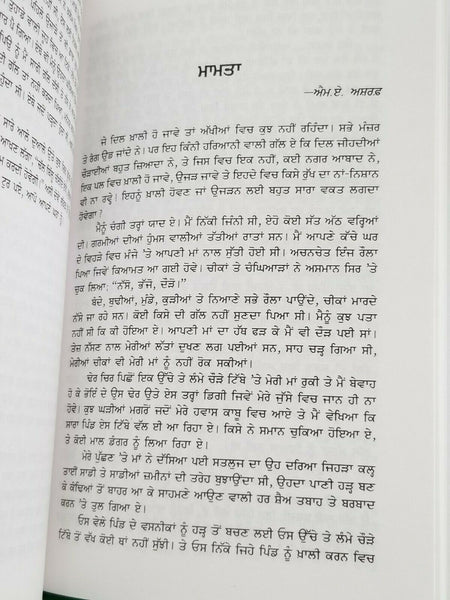 ਮਾਮਤਾ
—ਐਮ.ਏ. ਅਸ਼ਰਫ਼
ਜੇ ਦਿਲ ਖ਼ਾਲੀ ਹੋ ਜਾਵੇ ਤਾਂ ਅੱਖੀਆਂ ਵਿਚ ਕੁਝ ਨਹੀਂ ਰਹਿੰਦਾ। ਸਭੇ ਮੰਜ਼ਰ
ਤੇ ਰੰਗ ਉਡ ਜਾਂਦੇ ਨੇ। ਪਰ ਇਹ ਕਿੰਨੀ ਹਰਿਆਨੀ ਵਾਲੀ ਗੱਲ ਏ ਕਿ ਦਿਲ ਜੀਹਦੀਆਂ
ਚੌੜਾਈਆਂ ਬਹੁਤ ਜ਼ਿਆਦਾ ਨੇ, ਤੇ ਜਿਸ ਵਿਚ ਇਕ ਨਹੀਂ, ਕਈ ਨਗਰ ਆਬਾਦ ਨੇ,
ਇਕ ਪਲ ਵਿਚ ਖ਼ਾਲੀ ਹੋ ਜਾਵੇ, ਉਜੜ ਜਾਵੇ ਤੇ ਇਹਦੇ ਵਿਚ ਕਿਸੇ ਰੁੱਖ ਦਾ ਨਾਂ-ਨਿਸ਼ਾਨ
ਵੀ ਨਾ ਰਵ੍ਹੇ। ਇਹਨੂੰ ਖ਼ਾਲੀ ਹੋਵਣ ਜਾਂ ਉਜੜਨ ਲਈ ਬਹੁਤ ਸਾਰਾ ਵਕਤ ਲਗਦਾ
ਹੋਵੇਗਾ?
ਮੈਨੂੰ ਚੰਗੀ ਤਰ੍ਹਾਂ ਯਾਦ ਏ। ਮੈਂ ਨਿੱਕੀ ਜਿੰਨੀ ਸੀ, ਏਹੋ ਕੋਈ ਸੱਤ ਅੱਠ ਵਰ੍ਹਿਆਂ
ਦੀ। ਗਰਮੀਆਂ ਦੀਆਂ ਹੁੰਮਸ ਵਾਲੀਆਂ ਤੱਤੀਆਂ ਰਾਤਾਂ ਸਨ। ਮੈਂ ਆਪਣੇ ਕੱਚੇ ਘਰ
ਦੇ ਵਿਹੜੇ ਵਿਚ ਮੰਜੇ 'ਤੇ ਆਪਣੀ ਮਾਂ ਨਾਲ ਸੁੱਤੀ ਹੋਈ ਸੀ। ਅਚਨਚੇਤ ਇੰਜ ਰੌਲਾ
ਪਿਆ ਜਿਵੇਂ ਕਿਆਮਤ ਆ ਗਈ ਹੋਵੇ। ਚੀਕਾਂ ਤੇ ਚੰਘਿਆੜਾਂ ਨੇ ਅਸਮਾਨ ਸਿਰ 'ਤੇ
ਚੁਕ ਲਿਆ: "ਨੱਸੋ, ਭੱਜੋ, ਦੌੜੋ।"
ਬੰਦੇ, ਬੁਢੀਆਂ, ਮੁੰਡੇ, ਕੁੜੀਆਂ ਤੇ ਨਿਆਣੇ ਸਭੇ ਰੌਲਾ ਪਾਉਂਦੇ, ਚੀਕਾਂ ਮਾਰਦੇ
ਨੱਸੇ ਜਾ ਰਹੇ ਸਨ। ਕੋਈ ਕਿਸੇ ਦੀ ਗੱਲ ਨਹੀਂ ਸੁਣਦਾ ਪਿਆ ਸੀ। ਮੈਨੂੰ ਕੁਝ ਪਤਾ
ਨਹੀਂ ਸੀ ਕਿ ਕੀ ਹੋਇਆ ਏ। ਆਪਣੀ ਮਾਂ ਦਾ ਹੱਥ ਫੜ ਕੇ ਮੈਂ ਵੀ ਦੌੜ ਪਈ ਸਾਂ।
ਤੇਜ਼ ਨੱਸਣ ਨਾਲ ਮੇਰੀਆਂ ਲੱਤਾਂ ਦੁਖਣ ਲਗ ਪਈਆਂ ਸਨ, ਸਾਹ ਚੜ੍ਹ ਗਿਆ ਸੀ,
ਮੇਰੀਆਂ ਚੀਕਾਂ ਵੀ ਮੇਰੀ ਮਾਂ ਨੂੰ ਨਹੀਂ ਰੋਕ ਸਕੀਆਂ।
ਢੇਰ ਚਿਰ ਪਿਛੋਂ ਇਕ ਉੱਚੇ ਤੇ ਲੰਮੇ ਚੌੜੇ ਟਿੱਬੇ 'ਤੇ ਮੇਰੀ ਮਾਂ ਰੁਕੀ ਤੇ ਮੈਂ ਬੇਵਾਹ
ਹੋ ਕੇ ਭੋਇੰ ਦੇ ਉਸ ਢੇਰ ਉਤੇ ਏਸ ਤਰ੍ਹਾਂ ਡਿਗੀ ਜਿਵੇਂ ਮੇਰੇ ਜੁੱਸੇ ਵਿਚ ਜਾਨ ਹੀ ਨਾ
ਹੋਵੇ। ਕੁਝ ਘੜੀਆਂ ਮਗਰੋਂ ਜਦੋਂ ਮੇਰੇ ਹਵਾਸ ਕਾਬੂ ਵਿਚ ਆਏ ਤੇ ਮੈਂ ਵੇਖਿਆ ਕਿ
ਸਾਰਾ ਪਿੰਡ ਇਸ ਟਿੱਬੇ ਵੱਲ ਈ ਆ ਰਿਹਾ ਏ। ਕਿਸੇ ਨੇ ਸਮਾਨ ਚੁਕਿਆ ਹੋਇਆ ਏ,
ਤੇ ਕੋਈ ਮਾਲ ਡੰਗਰ ਨੂੰ ਲਿਆ ਰਿਹਾ ਏ।
ਮੇਰੇ ਪੁੱਛਣ 'ਤੇ ਮਾਂ ਨੇ ਦੱਸਿਆ ਪਈ ਸਤਲੁਜ ਦਾ ਉਹ ਦਰਿਆ ਜਿਹੜਾ ਕਲ੍ਹ
ਤਾਈਂ ਸਾਡੀ ਤੇ ਸਾਡੀਆਂ ਜ਼ਮੀਨਾਂ ਦੀ ਤਰੇਹ ਬੁਝਾਉਂਦਾ ਸੀ, ਉਹਦਾ ਪਾਣੀ ਹੜ੍ਹ ਬਣ
ਕੇ ਕੰਢਿਆਂ ਤੋਂ ਬਾਹਰ ਆ ਕੇ ਸਾਹਮਣੇ ਆਉਣ ਵਾਲੀ ਹਰ ਸ਼ੈਅ ਤਬਾਹ ਤੇ ਬਰਬਾਦ
ਕਰਨ 'ਤੇ ਤੁਲ ਗਿਆ ਏ।
ਓਸ ਵੇਲੇ ਪਿੰਡ ਦੇ ਵਸਨੀਕਾਂ ਨੂੰ ਹੜ੍ਹ ਤੋਂ ਬਚਣ ਲਈ ਓਸ ਉੱਚੇ ਤੇ ਲੰਮੇ ਚੌੜੇ
ਟਿੱਬੇ ਤੋਂ ਵੱਖ ਕੋਈ ਥਾਂ ਨਹੀਂ ਸੁੱਝੀ। ਤੇ ਓਸ ਨਿੱਕੇ ਜਿਹੇ ਪਿੰਡ ਨੂੰ ਖ਼ਾਲੀ ਕਰਨ ਵਿਚ